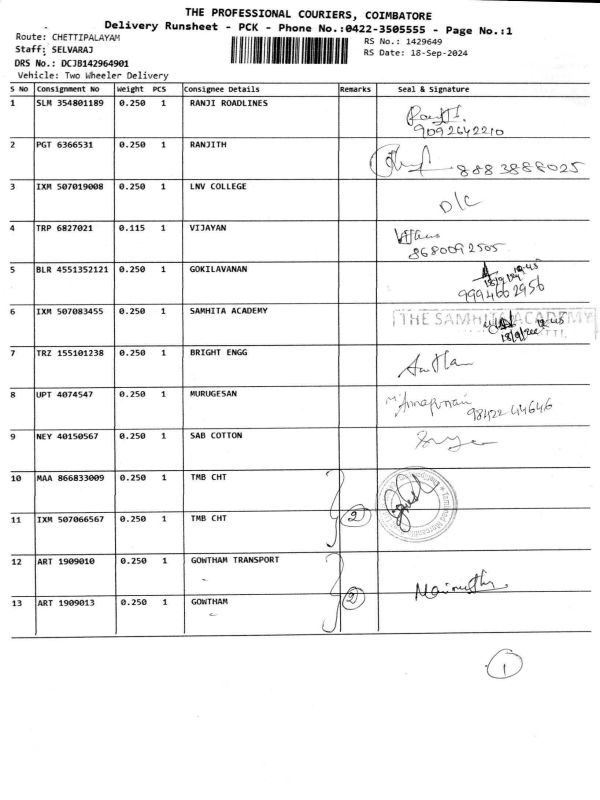 THE PROFESSIONAL COURIERS, COIMBATORE
Delivery Runsheet - PCK - Phone No.:0422-3505555 - Page No.:1
Route: CHETTIPALAYAM
RS No.: 1429649
Staff: SELVARAJ
RS Date: 18-Sep-2024
DRS No.: DCJB142964901
Vehicle: Two Wheeler Delivery
S No Consignment No Weight PCS Consignee Details Remarks Seal & Signature
1 SLM 354801189 0.250 1 RANJI ROADLINES
9092642210
2 PGT 6366531 0.250 1 RANJITH
8883888025
3 IXM 507019008 0.250 1 LNV COLLEGE D/C
4 TRP 6827021 0.115 1 VIJAYAN
8680092505
5 BLR 4551352121 0.250 1 GOKILAVANAN
9994662956
6 IXM 507083455 0.250 1 SAMHITA ACADEMY THE SAMHITA ACADEMY
7 TRZ 155101238 0.250 1 BRIGHT ENGG
8 UPT 4074547 0.250 1 MURUGESAN
98422 44646
9 NEY 40150567 0.250 1 SAB COTTON
10 MAA 866833009 0.250 1 TMB CHT
11 IXM 507066567 0.250 1 TMB CHT 2
12 ART 1909010 0.250 1 GOWTHAM TRANSPORT
13 ART 1909013 0.250 1 GOWTHAM 2
1